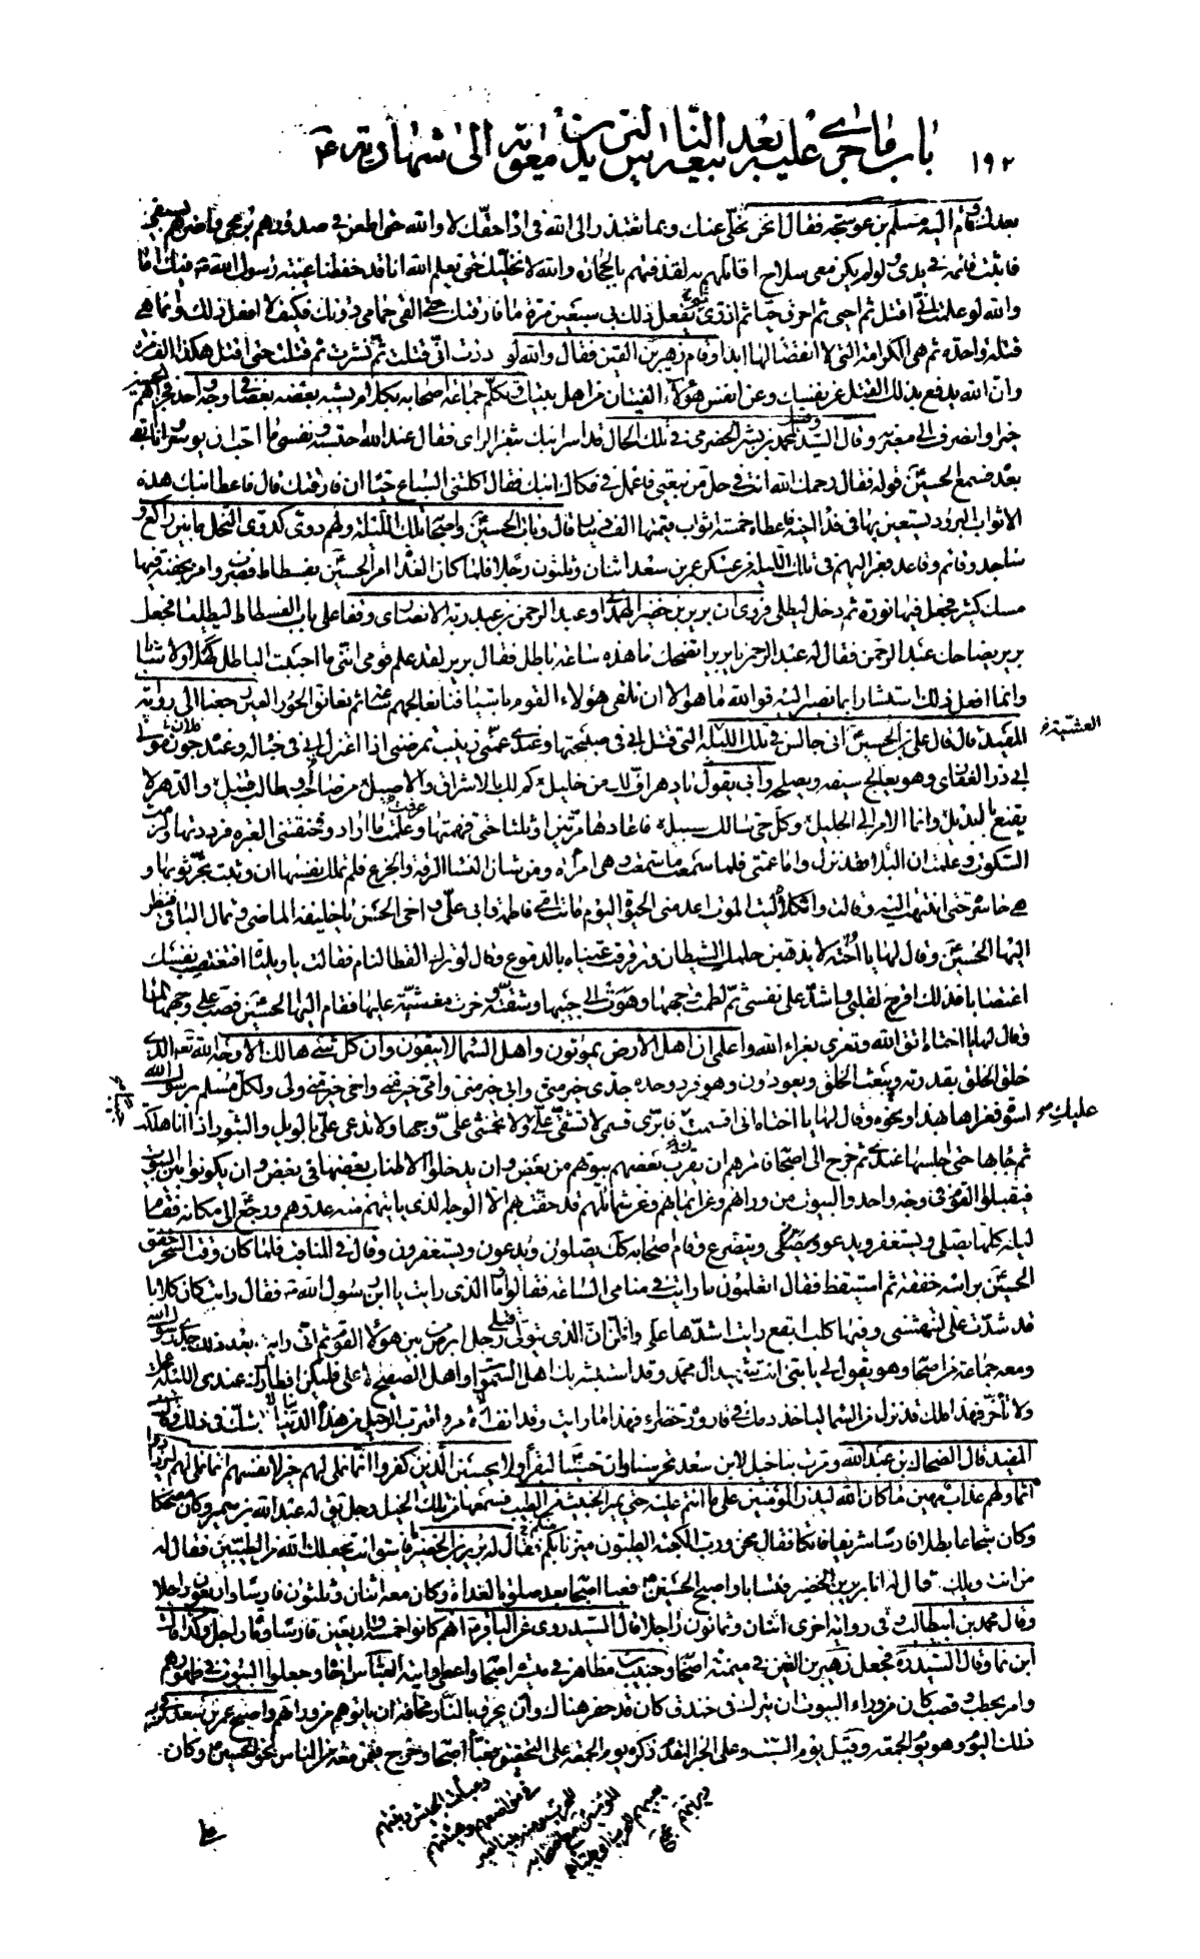 ١٩٢ باب ما جرى عليه بعد بيعة الناس ليزيد بن معوية الى شهادته
بعدك وقام اليه مسلم بن عوسجة فقال انحن نخلي عنك وبما نعتذر الى الله في اداء حقك لا والله حتى اطعن في صدورهم برمحي واضربهم بسيفي
ما ثبت قائمه في يدى ولو لم يكن معى سلاح اقاتلهم به لقذفتهم بالحجارة والله لا نخليك حتى يعلم الله انا قد حفظنا غيبة رسول الله فيك اما
والله لو علمت انى اقتل ثم احيى ثم احرق حيا ثم اذرى يفعل ذلك بى سبعين مرة ما فارقتك حتى القى حمامى دونك فكيف لا افعل ذلك وانما هى
قتلة واحدة ثم هى الكرامة التى لا انقضاء لها ابدا وقام زهير بن القين فقال والله لوددت انى قتلت ثم نشرت ثم قتلت حتى اقتل هكذا الف مرة
وان الله يدفع بذلك القتل عن نفسك وعن انفس هؤلاء الفتيان من اهل بيتك وتكلم جماعة اصحابه بكلام يشبه بعضه بعضا في وجه واحد فجزاهم الحسين
خيرا وانصرف الى مضربه وقال السيد وقيل لمحمد بن بشر الحضرمى فى تلك الحال قد اسر ابنك بثغر الرى فقال عند الله احتسبه ونفسى ما احب ان يوسر وانا ابقى
بعده فسمع الحسين قوله فقال رحمك الله انت فى حل من بيعتى فاعمل فى فكاك ابنك فقال اكلتنى السباع حيا ان فارقتك قال فاعط ابنك هذه
الاثواب البرود يستعين بها فى فداء اخيه فاعطاه خمسة اثواب قيمتها الف دينار قال وبات الحسين واصحابه تلك الليلة ولهم دوى كدوى النحل ما بين راكع و
ساجد وقائم وقاعد فعبر اليهم فى تلك الليلة من عسكر عمر بن سعد اثنان وثلثون رجلا فلما كان الغداة امر الحسين بفسطاط فضرب وامر بجفنة فيها
مسك كثير فجعل فيها نورة ثم دخل ليطلى فروى ان برير بن خضير الهمدانى وعبد الرحمن بن عبد ربه الانصارى وقفا على باب الفسطاط ليطليا بعده فجعل
برير يضاحك عبد الرحمن فقال له عبد الرحمن يا برير اتضحك ما هذه ساعة باطل فقال برير لقد علم قومى اننى ما احببت الباطل كهلا ولا شابا
وانما افعل ذلك استبشارا بما نصير اليه فوالله ما هو الا ان نلقى هؤلاء القوم باسيافنا نعالجهم ساعة ثم نعانق الحور العين رجعنا الى رواية
المفيد قال قال على بن الحسين انى جالس فى تلك الليلة التى قتل ابى فى صبيحتها وعندى عمتى زينب تمرضنى اذ اعتزل ابى فى خباء له وعنده جون مولى
العشية
ابى ذر الغفارى وهو يعالج سيفه ويصلحه وابى يقول يا دهر اف لك من خليل كم لك بالاشراق والاصيل من صاحب وطالب قتيل والدهر لا
يقنع بالبديل وانما الامر الى الجليل وكل حى سالك سبيلى فاعادها مرتين او ثلثا حتى فهمتها وعلمت ما اراد فخنقتنى العبرة فرددتها ولزمت
السكوت وعلمت ان البلاء قد نزل واما عمتى فلما سمعت ما سمعت وهى امرأة ومن شان النساء الرقة والجزع فلم تملك نفسها ان وثبت تجر ثوبها و
هى حاسرة حتى انتهت اليه وقالت واثكلاه ليت الموت اعدمنى الحيوة اليوم ماتت امى فاطمة وابى على واخى الحسن يا خليفة الماضى وثمال الباقى فنظر
اليها الحسين وقال لها يا اخته لا يذهبن حلمك الشيطان وترقرقت عيناه بالدموع وقال لو ترك القطا لنام فقالت يا ويلتاه افتغتصب نفسك
اغتصابا فذلك اقرح لقلبى واشد على نفسى ثم لطمت وجهها وهوت الى جيبها وشقته وخرت مغشية عليها فقام اليها الحسين فصب على وجهها الماء
وقال لها يا اختاه اتقى الله وتعزى بعزاء الله واعلمى ان اهل الارض يموتون واهل السماء لا يبقون وان كل شىء هالك الا وجه الله تعالى الذى
خلق الخلق بقدرته ويبعث الخلق ويعودون وهو فرد وحده جدى خير منى وابى خير منى وامى خير منى واخى خير منى ولى ولكل مسلم برسول الله
اسوة فعزاها بهذا ونحوه وقال لها يا اختاه انى اقسمت عليك فابرى قسمى لا تشقى على جيبا ولا تخمشى على وجها ولا تدعى على بالويل والثبور اذا انا هلكت
ثم جاء بها حتى اجلسها عندى ثم خرج الى اصحابه فامرهم ان يقرب بعضهم بيوتهم من بعض وان يدخلوا الاطناب بعضها فى بعض وان يكونوا بين البيوت
فيقبلوا القوم فى وجه واحد والبيوت من ورائهم وعن ايمانهم وعن شمائلهم قد حفت بهم الا الوجه الذى ياتيهم منه عدوهم ورجع الى مكانه فقام
ليلته كلها يصلى ويستغفر ويدعو ويتضرع وقام اصحابه كذلك يصلون ويدعون ويستغفرون وقال فى المناقب فلما كان وقت السحر خفق
الحسين براسه خفقة ثم استيقظ فقال اتعلمون ما رايت فى منامى الساعة فقالوا وما الذى رايت يا ابن رسول الله فقال رايت كان كلابا
قد شدت على لتنهشنى وفيها كلب ابقع رايته اشدها على واظن ان الذى يتولى قتلى رجل ابرص من بين هؤلاء القوم ثم انى رايت بعد ذلك جدى رسول الله
ومعه جماعة من اصحابه وهو يقول لى يا بنى انت شهيد ال محمد وقد استبشر بك اهل السموات واهل الصفيح الاعلى فليكن افطارك عندى الليلة عجل
ولا تؤخر فهذا ملك قد نزل من السماء لياخذ دمك فى قارورة خضراء فهذا ما رايت وقد ازف الامر واقترب الرحيل من هذه الدنيا لا شك فى ذلك وقال
المفيد قال الضحاك بن عبد الله ومرت بنا خيل لابن سعد تحرسنا وان حسينا ليقرأ ولا يحسبن الذين كفروا انما نملى لهم خير لانفسهم انما نملى لهم ليزدادوا
اثما ولهم عذاب مهين ما كان الله ليذر المؤمنين على ما انتم عليه حتى يميز الخبيث من الطيب فسمعها من تلك الخيل رجل يقال له عبد الله بن سمير وكان مضحاكا
وكان شجاعا بطلا فارسا شريفا فاتكا فقال نحن ورب الكعبة الطيبون ميزنا بكم فقال له برير بن الخضير يا فاسق انت يجعلك الله من الطيبين فقال له
من انت ويلك قال له انا برير بن الخضير فتسابا واصبح الحسين فعبا اصحابه بعد صلوة الغداة وكان معه اثنان وثلثون فارسا واربعون راجلا
وقال محمد بن ابيطالب وفى رواية اخرى اثنان وثمانون راجلا وقال السيد روى عن الباقر انهم كانوا خمسة واربعين فارسا ومائة راجل وكذا قال
ابن نما وقال المفيد فجعل زهير بن القين فى ميمنة اصحابه وحبيب بن مظاهر فى ميسرة اصحابه واعطى رايته العباس اخاه وجعلوا البيوت فى ظهورهم
وامر بحطب وقصب كان من وراء البيوت ان يترك فى خندق كان قد حفر هناك وان يحرق بالنار مخافة ان ياتوهم من ورائهم واصبح عمر بن سعد فى
ذلك اليوم وهو يوم الجمعة وقيل يوم السبت فعبا اصحابه وخرج فيمن معه من الناس نحو الحسين وكان